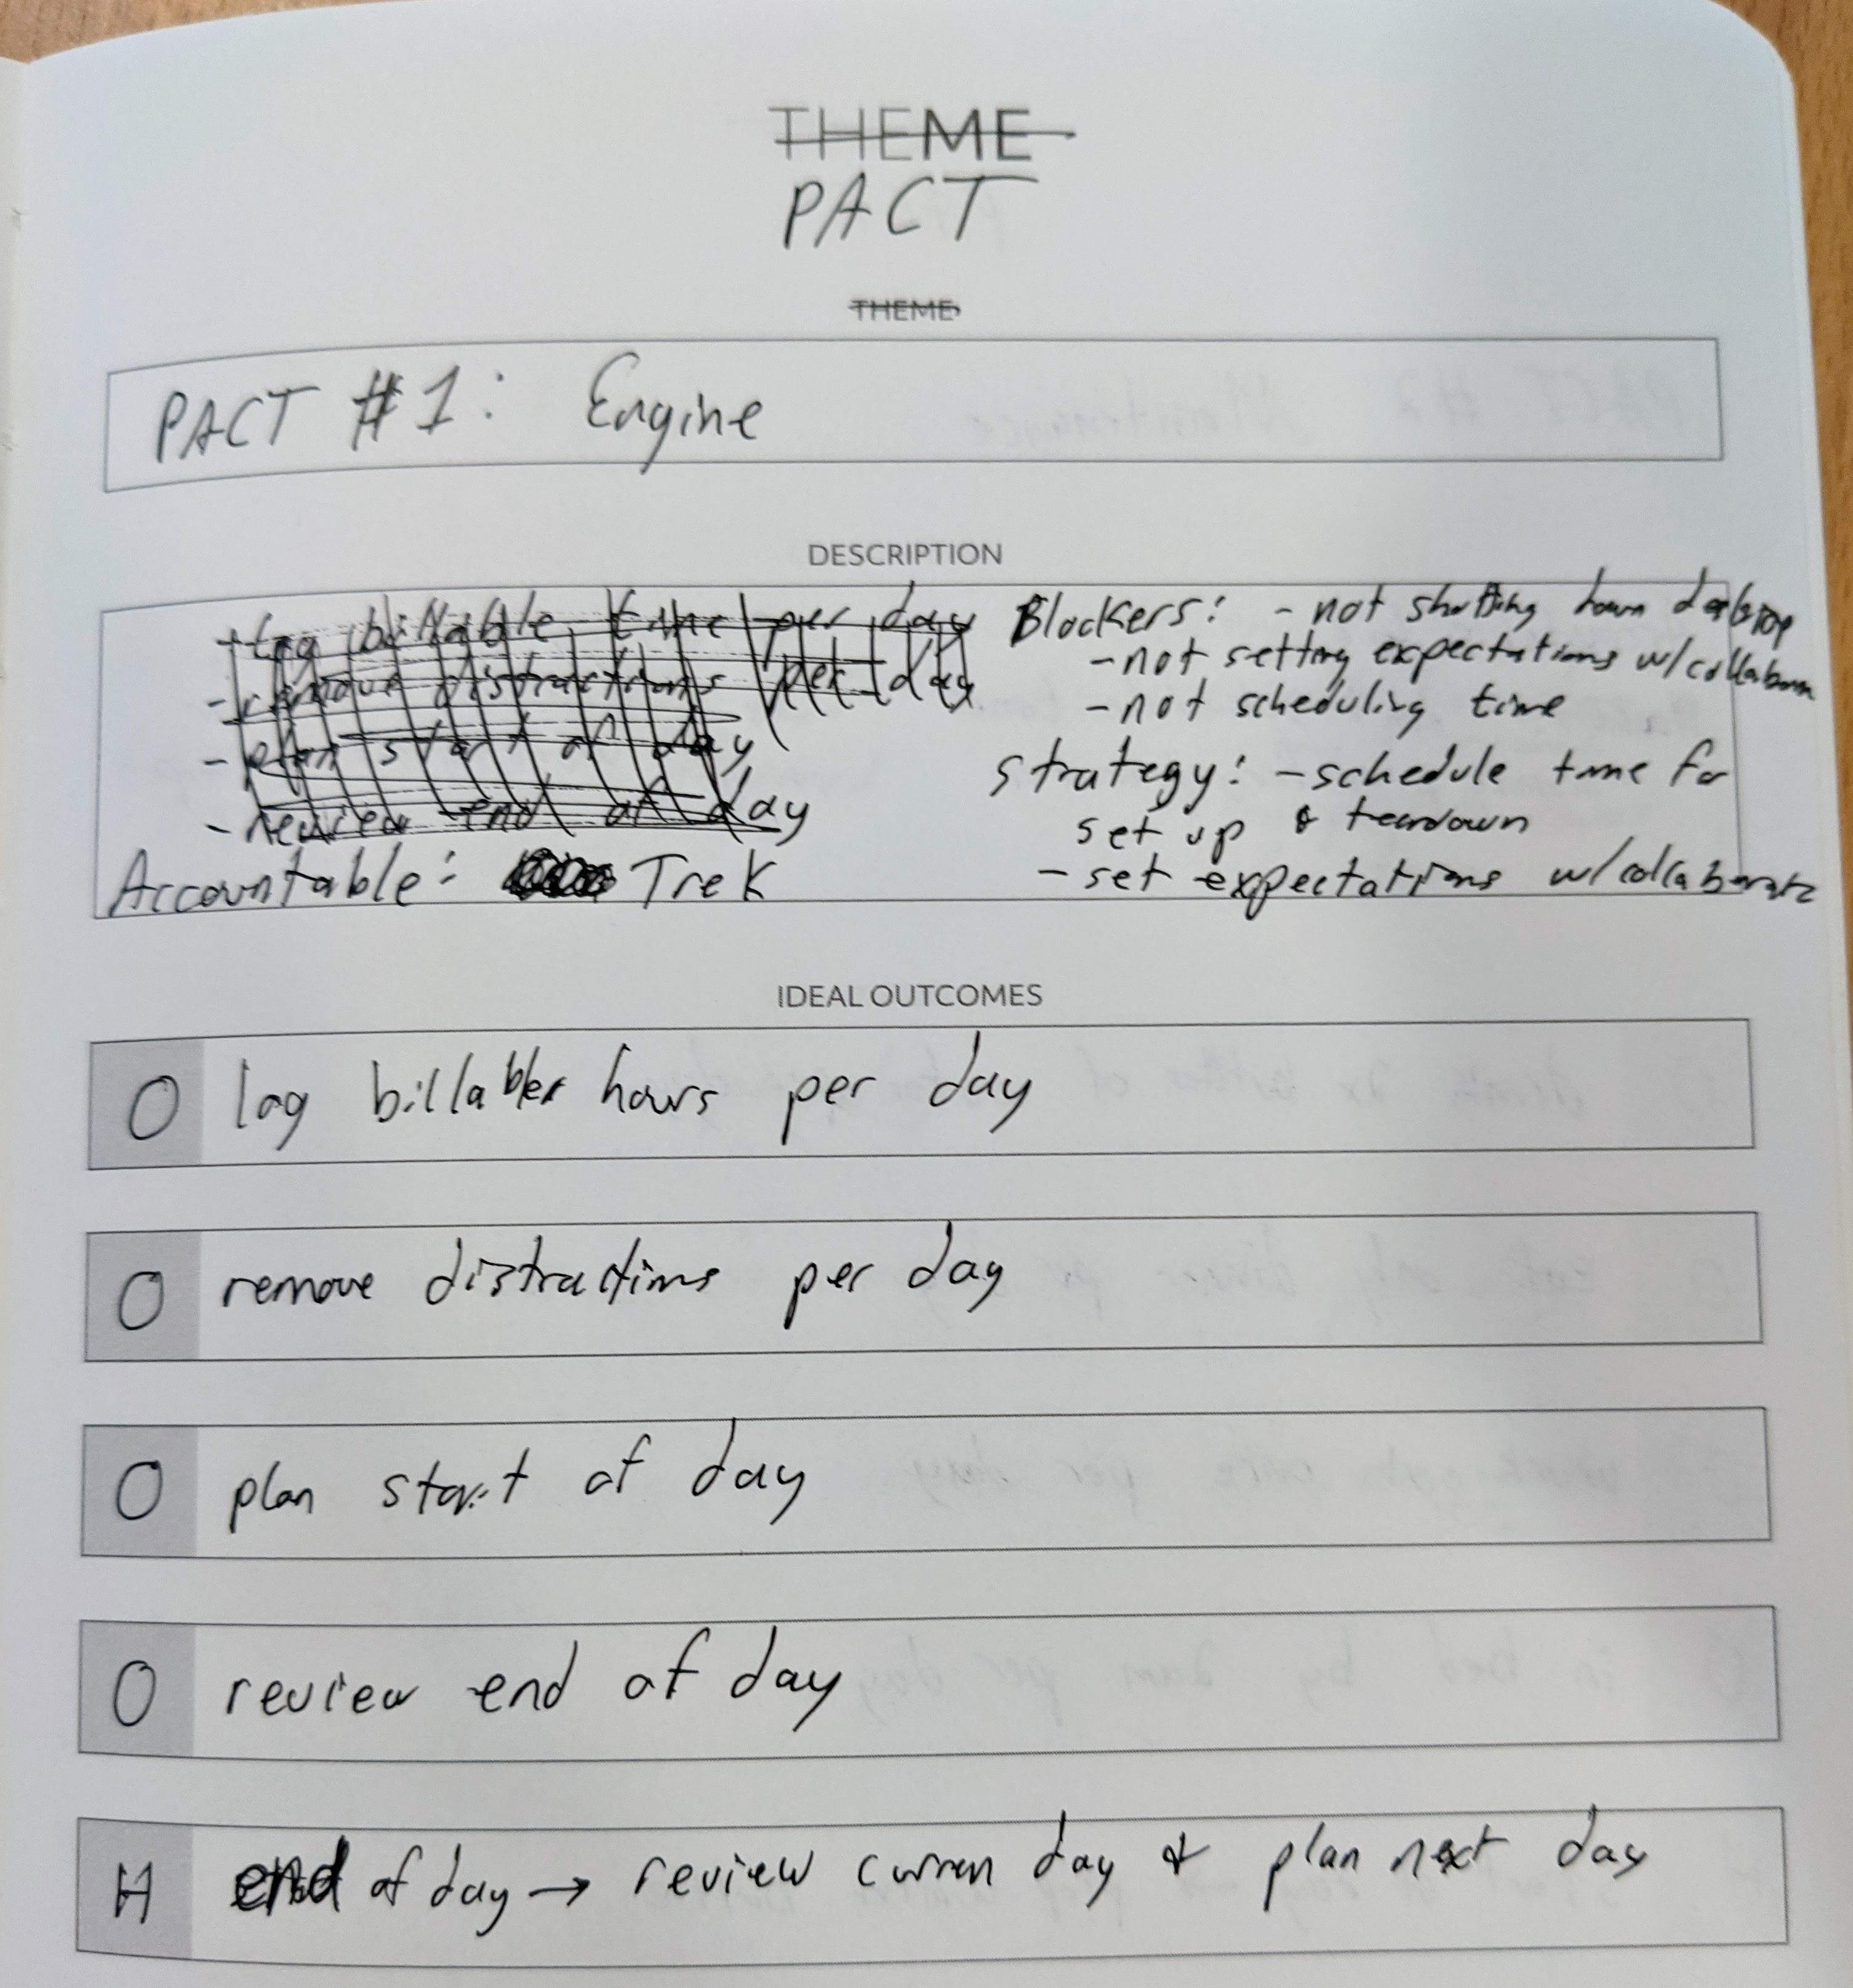 THEME
PACT
THEME
PACT #1: Engine
DESCRIPTION
- log billable time per day
- remove distractions per day
- plan start of day
- review end of day
Accountable: Trek
Blockers: - not shutting down desktop
- not setting expectations w/
- not scheduling time
Strategy: - schedule time for
set up & teardown
- set expectations w/
IDEAL OUTCOMES
O log billable hours per day
O remove distractions per day
O plan start of day
O review end of day
H end of day → review curren day & plan next day